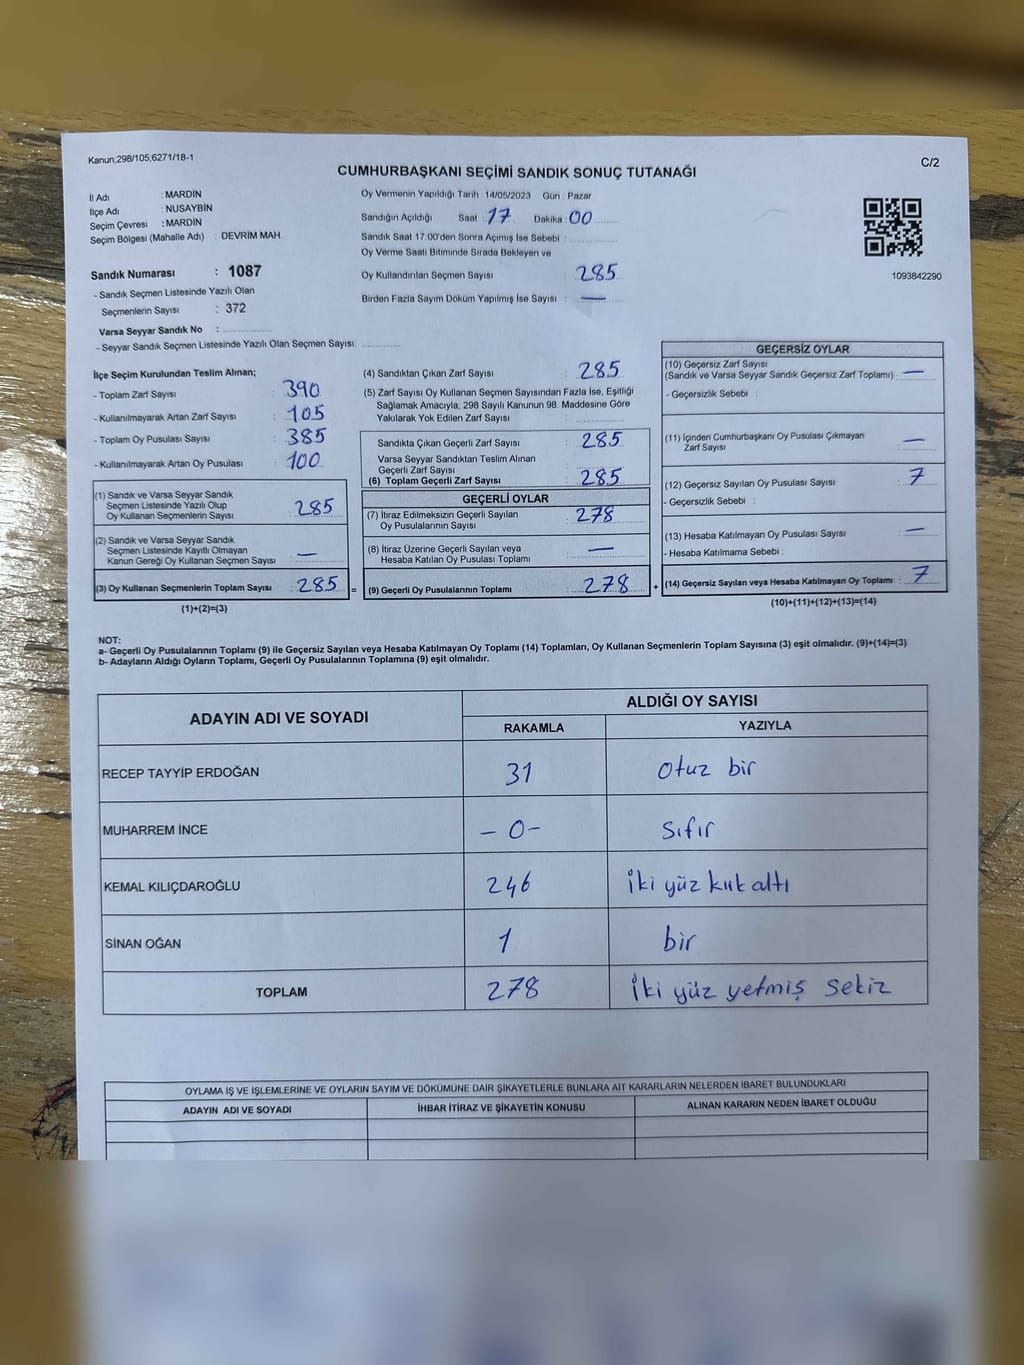 Kanun,298/105;6271/18-1
C/2
CUMHURBAŞKANI SEÇİMİ SANDIK SONUÇ TUTANAĞI
İl Adı : MARDİN
İlçe Adı : NUSAYBİN
Seçim Çevresi : MARDİN
Seçim Bölgesi (Mahalle Adı) : DEVRİM MAH.
Oy Vermenin Yapıldığı Tarih 14/05/2023 Gün : Pazar
Sandığın Açıldığı Saat : 17 Dakika : 00
Sandık Saat 17.00'den Sonra Açımış İse Sebebi :
Oy Verme Saati Bitiminde Sırada Bekleyen ve
Oy Kullandırılan Seçmen Sayısı : 285
Birden Fazla Sayım Döküm Yapılmış İse Sayısı : —
1093842290
Sandık Numarası : 1087
- Sandık Seçmen Listesinde Yazılı Olan
Seçmenlerin Sayısı : 372
Varsa Seyyar Sandık No :
- Seyyar Sandık Seçmen Listesinde Yazılı Olan Seçmen Sayısı:
İlçe Seçim Kurulundan Teslim Alınan;
- Toplam Zarf Sayısı : 390
- Kullanılmayarak Artan Zarf Sayısı : 105
- Toplam Oy Pusulası Sayısı : 385
- Kullanılmayarak Artan Oy Pusulası : 100
(1) Sandık ve Varsa Seyyar Sandık
Seçmen Listesinde Yazılı Olup
Oy Kullanan Seçmenlerin Sayısı : 285
(2) Sandık ve Varsa Seyyar Sandık
Seçmen Listesinde Kayıtlı Olmayan
Kanun Gereği Oy Kullanan Seçmen Sayısı : —
(3) Oy Kullanan Seçmenlerin Toplam Sayısı : 285 =
(1)+(2)=(3)
(4) Sandıktan Çıkan Zarf Sayısı : 285
(5) Zarf Sayısı Oy Kullanan Seçmen Sayısından Fazla İse, Eşitliği
Sağlamak Amacıyla; 298 Sayılı Kanunun 98. Maddesine Göre
Yakılarak Yok Edilen Zarf Sayısı :
Sandıkta Çıkan Geçerli Zarf Sayısı : 285
Varsa Seyyar Sandıktan Teslim Alınan
Geçerli Zarf Sayısı :
(6) Toplam Geçerli Zarf Sayısı : 285
GEÇERLİ OYLAR
(7) İtiraz Edilmeksizin Geçerli Sayılan
Oy Pusulalarının Sayısı : 278
(8) İtiraz Üzerine Geçerli Sayılan veya
Hesaba Katılan Oy Pusulası Toplamı : —
(9) Geçerli Oy Pusulalarının Toplamı : 278 +
GEÇERSİZ OYLAR
(10) Geçersiz Zarf Sayısı
(Sandık ve Varsa Seyyar Sandık Geçersiz Zarf Toplamı) : —
- Geçersizlik Sebebi :
(11) İçinden Cumhurbaşkanı Oy Pusulası Çıkmayan
Zarf Sayısı : —
(12) Geçersiz Sayılan Oy Pusulası Sayısı : 7
- Geçersizlik Sebebi :
(13) Hesaba Katılmayan Oy Pusulası Sayısı : —
- Hesaba Katılmama Sebebi :
(14) Geçersiz Sayılan veya Hesaba Katılmayan Oy Toplamı : 7
(10)+(11)+(12)+(13)=(14)
NOT:
a- Geçerli Oy Pusulalarının Toplamı (9) ile Geçersiz Sayılan veya Hesaba Katılmayan Oy Toplamı (14) Toplamları, Oy Kullanan Seçmenlerin Toplam Sayısına (3) eşit olmalıdır. (9)+(14)=(3)
b- Adayların Aldığı Oyların Toplamı, Geçerli Oy Pusulalarının Toplamına (9) eşit olmalıdır.
ADAYIN ADI VE SOYADI
ALDIĞI OY SAYISI
RAKAMLA YAZIYLA
RECEP TAYYİP ERDOĞAN 31 Otuz bir
MUHARREM İNCE - 0 - Sıfır
KEMAL KILIÇDAROĞLU 246 İki yüz kırk altı
SİNAN OĞAN 1 bir
TOPLAM 278 İki yüz yetmiş sekiz
OYLAMA İŞ VE İŞLEMLERİNE VE OYLARIN SAYIM VE DÖKÜMÜNE DAİR ŞİKAYETLERLE BUNLARA AİT KARARLARIN NELERDEN İBARET BULUNDUKLARI
ADAYIN ADI VE SOYADI İHBAR İTİRAZ VE ŞİKAYETİN KONUSU ALINAN KARARIN NEDEN İBARET OLDUĞU